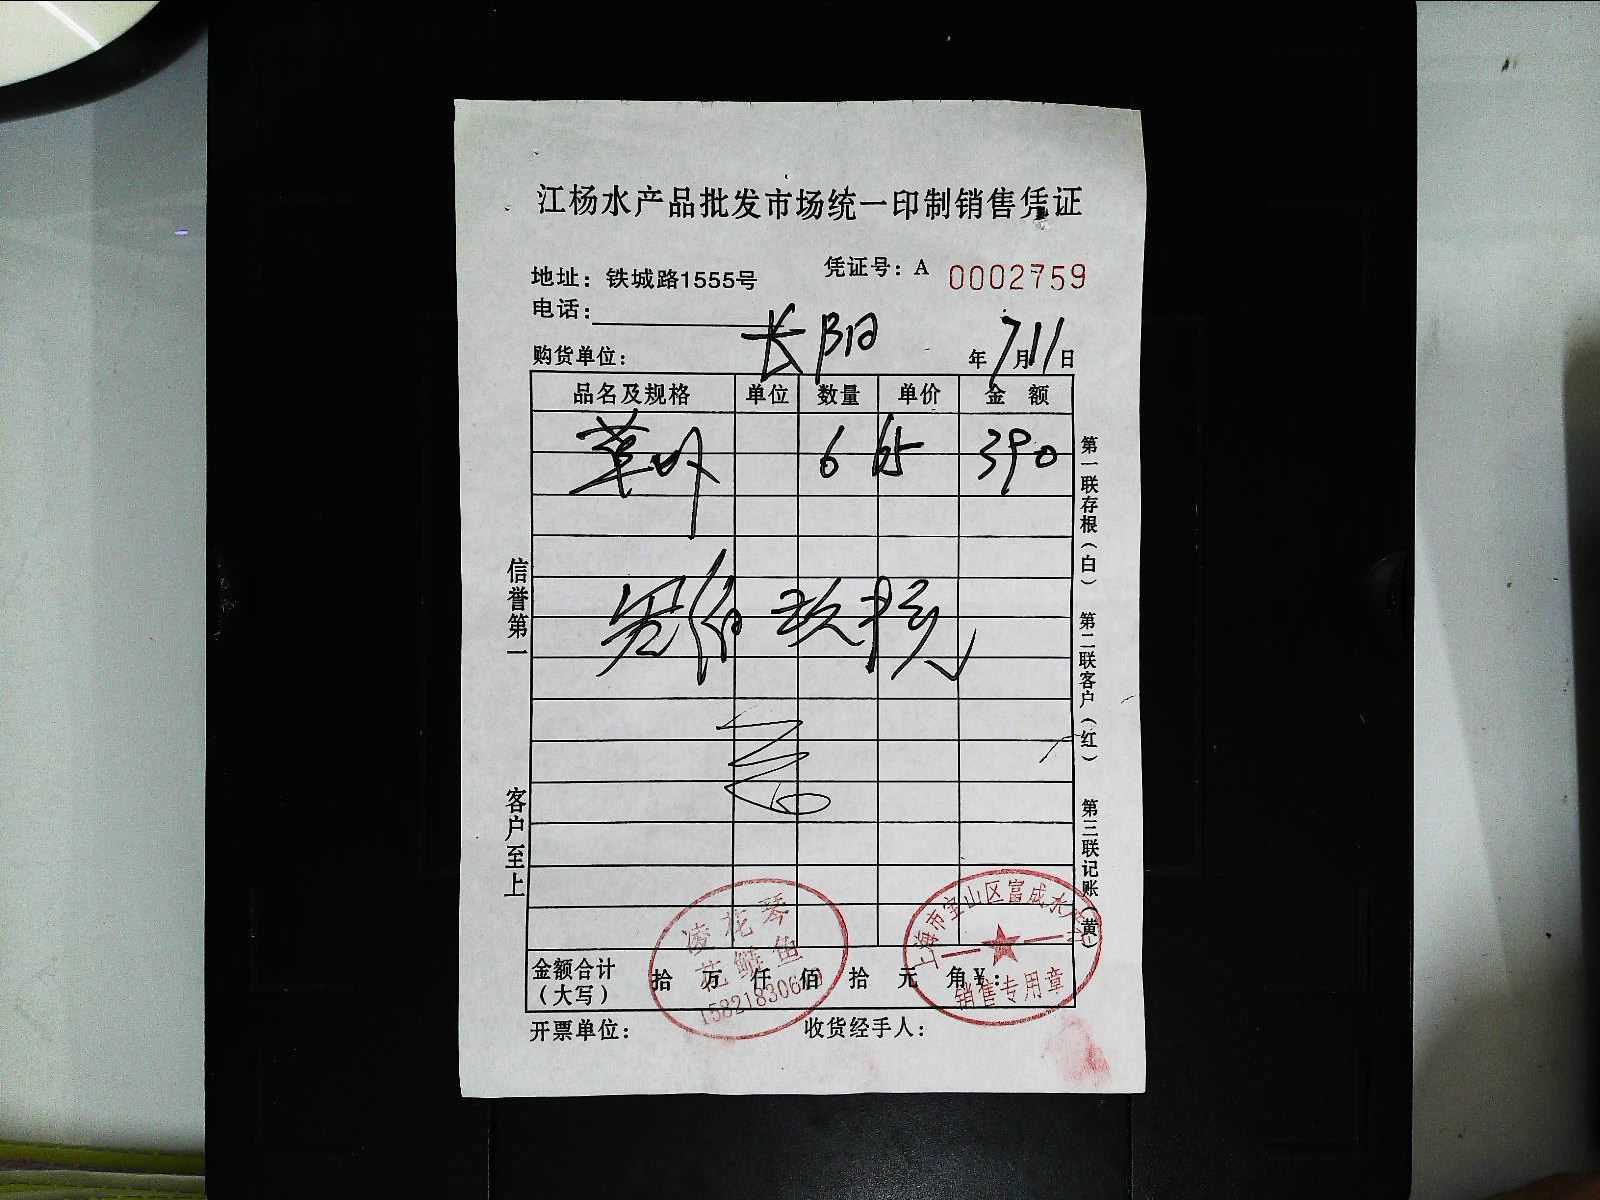 江杨水产品批发市场统一印制销售凭证
地址：铁城路1555号
凭证号：A 0002759
电话：
购货单位：长阳
年7月11日
品名及规格 单位 数量 单价 金 额
6 65 390
叁佰玖拾元
第一联存根（白） 第二联客户（红） 第三联记账（黄）
信誉第一 客户至上
金额合计（大写） 拾 万 仟 佰 拾 元 角 ¥：
凌花琴
花鲢鱼
上海市宝山区富成水产
销售专用章
开票单位： 收货经手人：